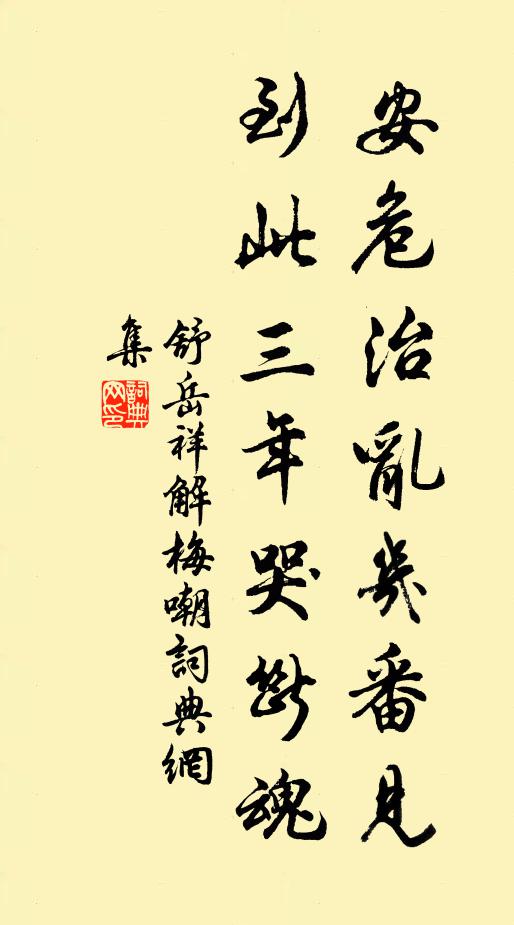 安危治亂幾番見
到此三年哭斷魂
舒岳祥解梅嘲詞典網
集
詞典網印